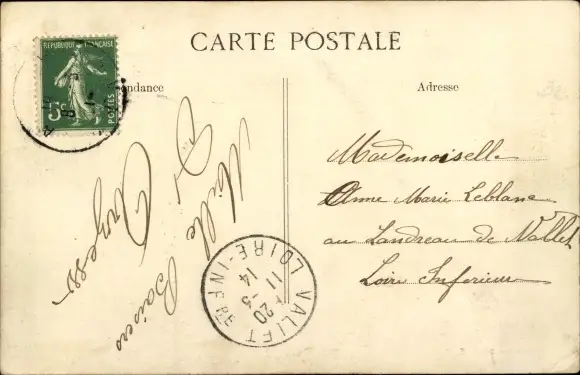 CARTE POSTALE
REPUBLIQUE FRANÇAISE
5c
POSTES
ndance
Adresse
Mille
Baisers
Mademoiselle
Anne Marie Leblanc
au Landreau de Vallet
Loire Inferieure
VALLET
LOIRE-INFRE
20
11-5
14